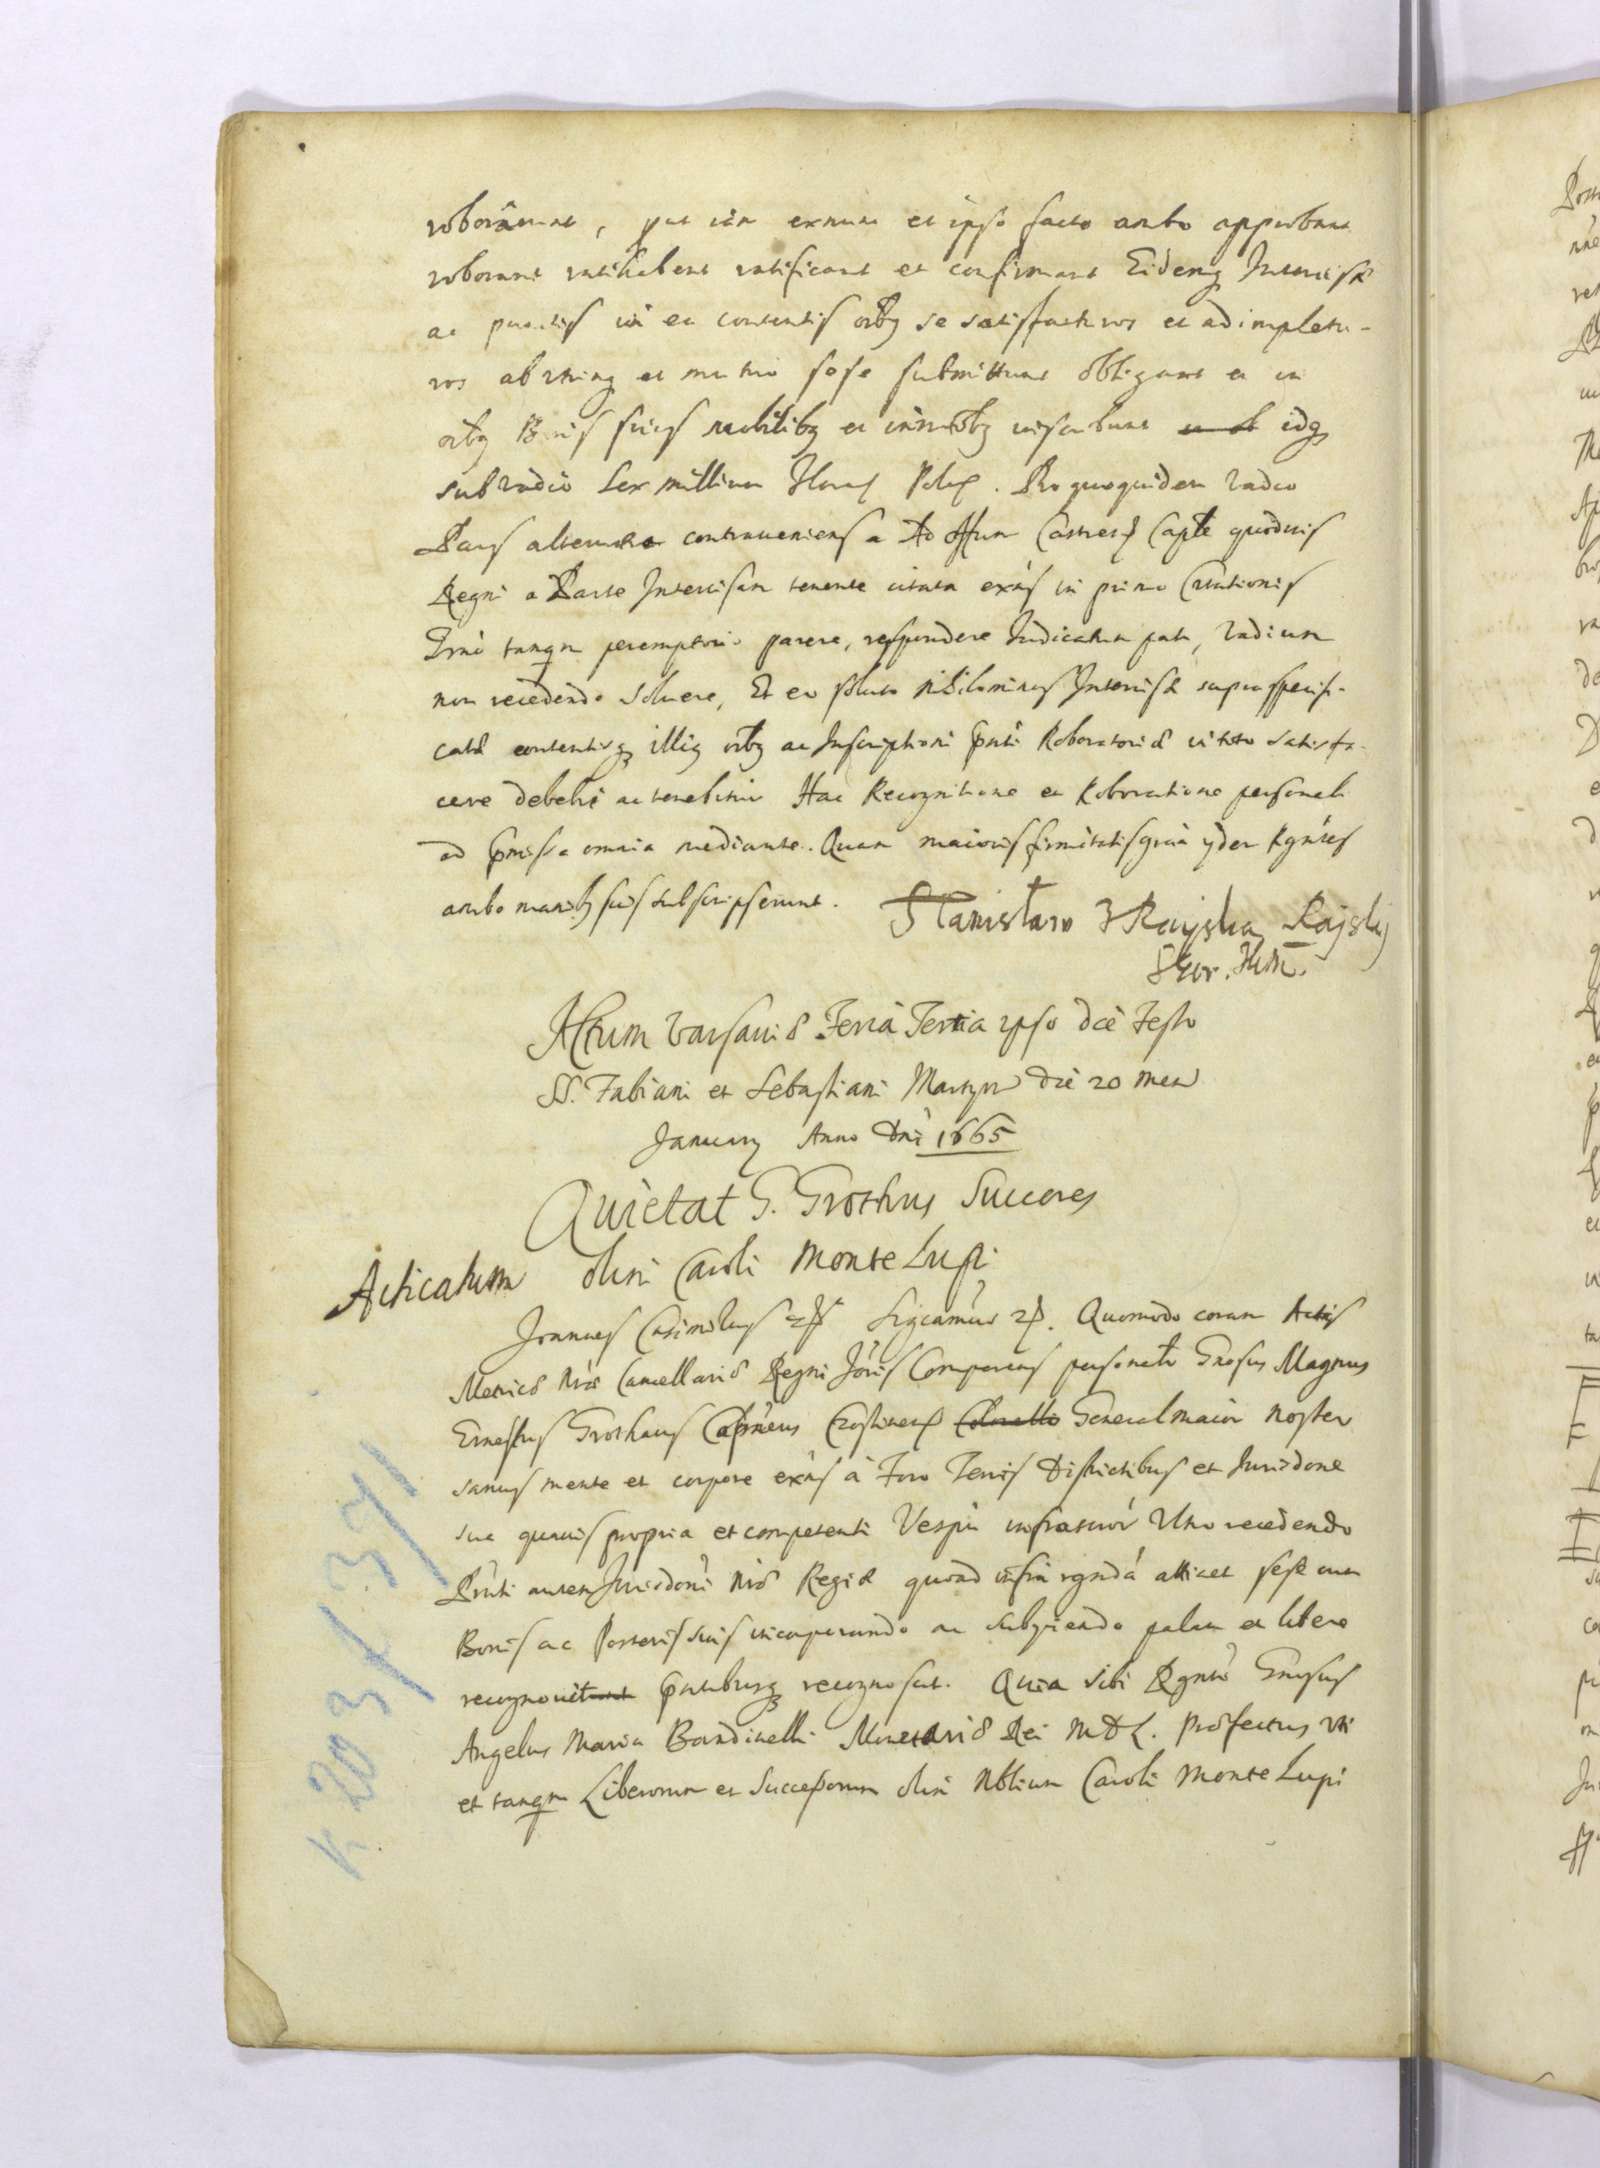 roborârunt, put iām exnunc et ipso facto ambo approbant
roborant ratihabent ratificant et confirmant Eidemq Intercisæ
ac punctis in ea contentis oībq se satisfacturos et adimpletu-
ros ab utrinq et mutuo sese submittunt obligant et in
oībq Bonis suis mobilibq et immōbq inscribunt idq
sub vadio Sex millium Floren Polq. Pro quoquidem vadio
Pars alterutra contraueniens a Ad Offum Castrense Captle quoduis
Regni a Parte Intercisam tenente citata exūs in primo Citationis
Trno tanqm peremptorio parere, respondere Iudicatum pati, Vadium
non recedendo soluere, Et eo soluto nihilominus Intercisæ supraspecifi-
catæ contentisq illiq oībq ac Inscriptioni pnti Roboratoriæ in toto satisfa-
cere debebit ac tenebitur Hac Recognitione et Roboratione personali
ad pmissa omnia mediante. Quam maioris firmitatis grāa ÿdem Rgntes
ambo manibq suis subscripserunt.
Stanisław z Rayska Rajskij
Skar. Hm.
Actum Varsauiæ Feriâ Tertia ipso die Festo
SS. Fabiani et Sebastiani Martyr die 20 Men
January Anno Dni 1665
Quietat G. Grothus Succores
olim Caroli Monte Lupi
Acticatum
Joannes Casimirus etc Sigcamus etc. Quomodo coram Actis
Metrices Nræ Cancellariæ Regni Joris Comparens personalr Gnosus Magnus
Ernestus Grothaus Capneus Crostinens Colonello Generalmaior Noster
sanus mente et corpore exūs â Foro Terris Districtibus et Jurisdone
sua quauis propria et competenti Respū infrascrōr Vtro recedendo
Pnti autem Jurisdoni Nræ Regiæ quoad infra rgnda attinet sese cum
Bonis ac Posteris suis incorporando ac subyciendo palam et libere
recognouit pntibusq recognoscit. Quia sibi Rgnti Gnosus
Angelus Maria Bandinelli Monetariæ Rei MDL. Præfectus uti
et tanqm Liberorum et Successorum olim Nblium Caroli Monte Lupi
K 203 f 371